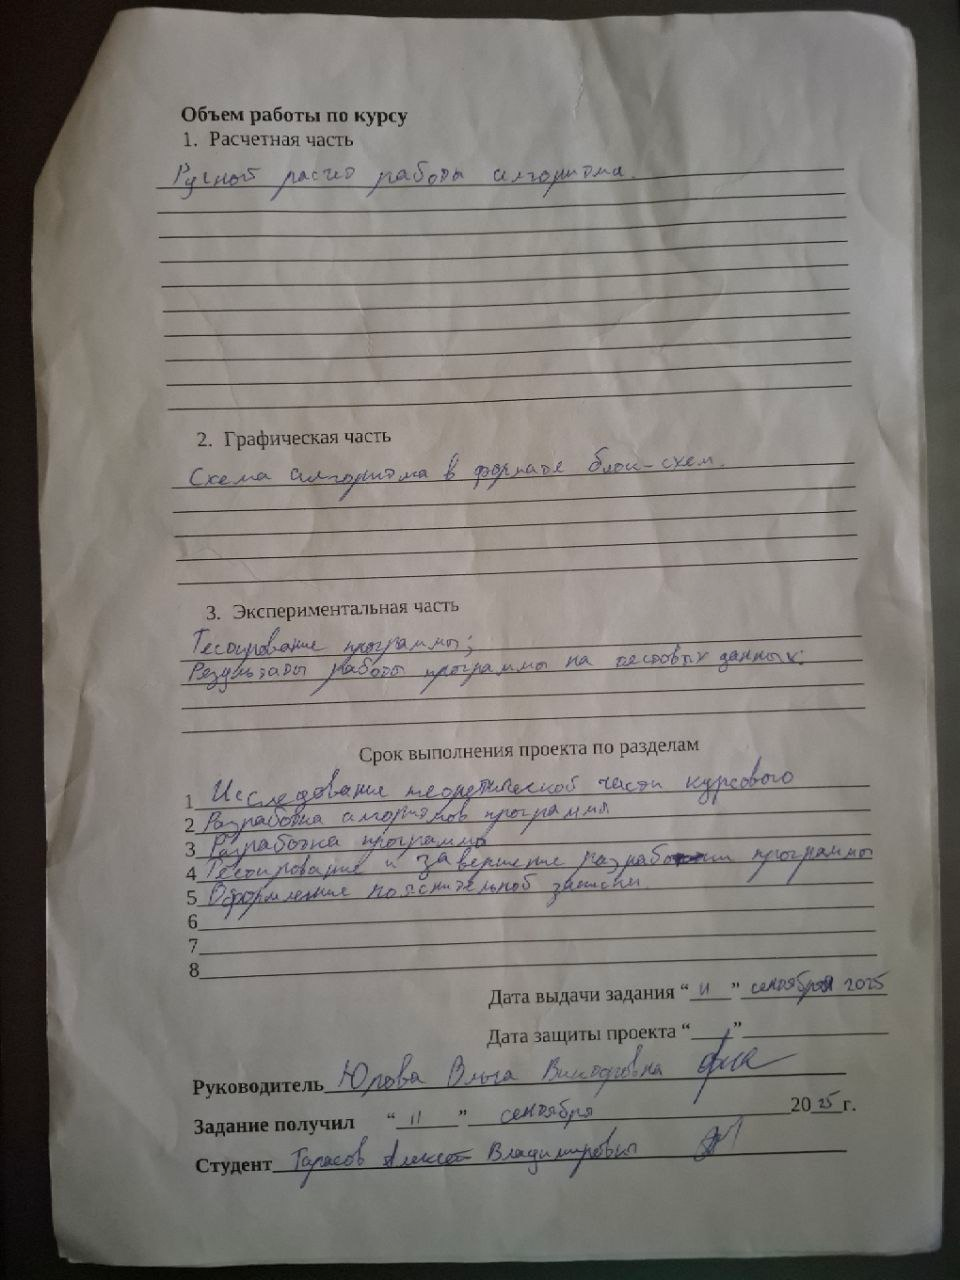 Объем работы по курсу
1. Расчетная часть
Ручной расчет работы алгоритма.
2. Графическая часть
Схема алгоритма в формате блок-схем.
3. Экспериментальная часть
Тестирование программы;
Результаты работы программы на тестовых данных.
Срок выполнения проекта по разделам
1 Исследование теоретической части курсового
2 Разработка алгоритмов программы
3 Разработка программы
4 Тестирование и завершение разработки программы
5 Оформление пояснительной записки.
6
7
8
Дата выдачи задания “ 11 ” сентября 2025
Дата защиты проекта “ ”
Руководитель Юрова Ольга Викторовна
Задание получил “ 11 ” сентября 2025 г.
Студент Тарасов Алексей Владимирович